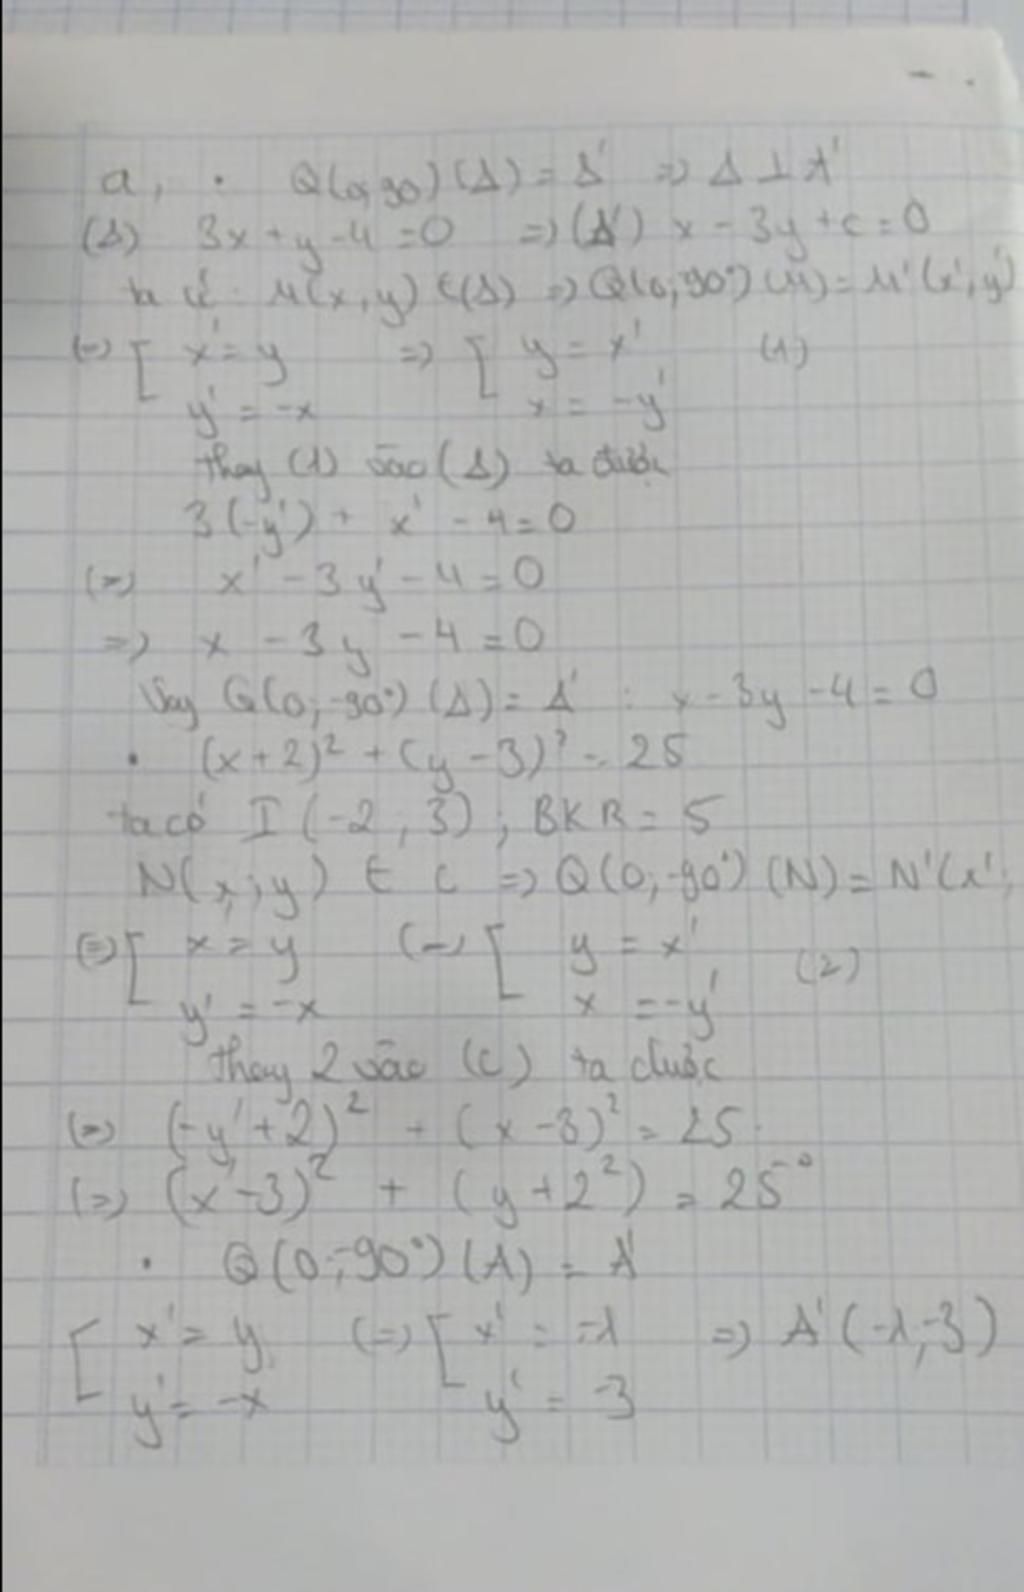 a, · Q(0,90) (Δ) = Δ' => Δ ⊥ Δ'
(Δ) 3x + y - 4 = 0 => (Δ') x - 3y + c = 0
ta có M(x,y) ∈ (Δ) => Q(0,-90°) (M) = M'(x',y')
(=) [ x' = y => [ y = x' (1)
y' = -x x = -y'
thay (1) vào (Δ) ta được
3(-y') + x' - 4 = 0
(=) x' - 3y' - 4 = 0
=> x - 3y - 4 = 0
Vay Q(0,-90°) (Δ) = Δ' : x - 3y - 4 = 0
· (x+2)² + (y-3)² = 25
ta có I (-2, 3), BKR = 5
N(x,y) ∈ C => Q(0,-90°) (N) = N'(x';
(=) [ x = y (=) [ y = x' (2)
y' = -x x = -y'
thay 2 vào (C) ta được
(=) (-y'+2)² + (x-3)² = 25
(=) (x'-3)² + (y+2²) = 25
· Q(0;-90°) (A) = A'
[ x' = y (=) [ x' = -1 => A'(-1,-3)
y' = -x y' = -3